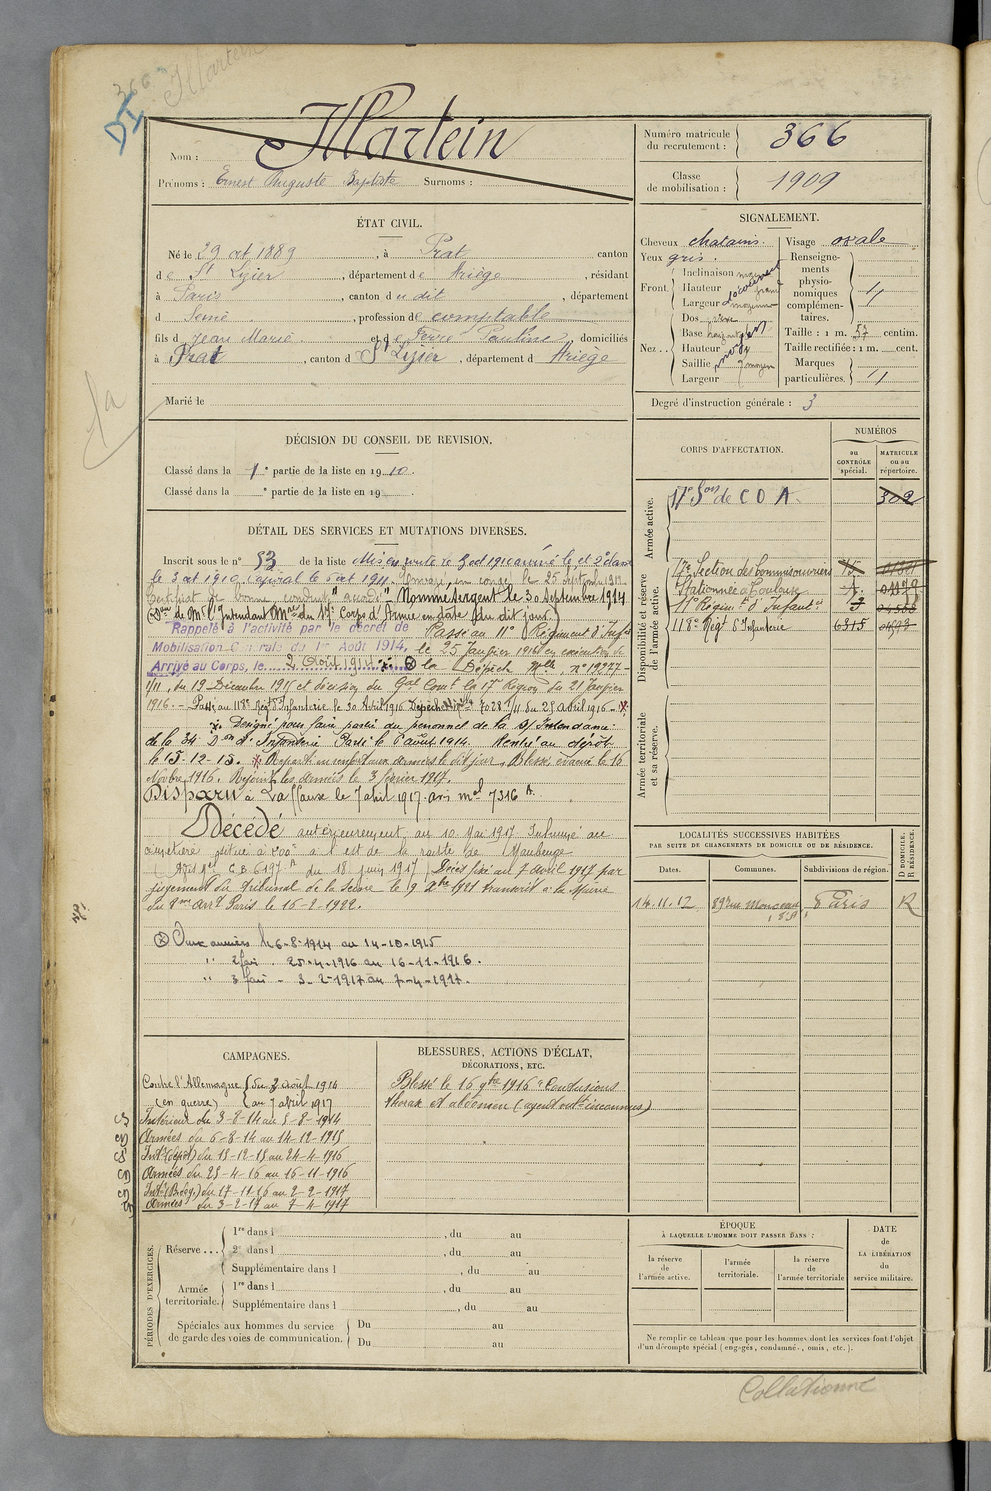 366 Martein
DI
Martein
Nom :
Prénoms : Ernest Auguste Baptiste Surnoms :
Numéro matricule
du recrutement : 366
Classe
de mobilisation : 1909
ÉTAT CIVIL.
Né le 29 oct 1889, à Prat canton
de St Lizier, département de Ariège, résidant
à Paris, canton du dit, département
d Seine, profession de comptable
fils d Jean Marie et de Ferré Pauline domiciliés
à Prat, canton d St Lizier, département d Ariège
Marié le
SIGNALEMENT.
Cheveux chatains.
Yeux gris.
Front.
Inclinaison moyen
Hauteur grand
Largeur moyenne
Nez..
Dos
Base
Hauteur
Saillie moyen
Largeur
Visage ovale
Renseigne-
ments
physio-
nomiques
complémen-
taires.
Taille : 1 m. 57 centim.
Taille rectifiée : 1 m. cent.
Marques
particulières.
Degré d'instruction générale : 3
DÉCISION DU CONSEIL DE REVISION.
Classé dans la 1e partie de la liste en 1910.
Classé dans la e partie de la liste en 19 .
CORPS D'AFFECTATION.
NUMÉROS
au
CONTRÔLE
spécial.
MATRICULE
ou au
répertoire.
Armée active.
17e Son de C O A 302
Disponibilité et réserve
de l'armée active.
17e Section de commis ouvriers 15
Stationnée à Toulouse
11e Régimt d'Infantie
118e Régt d'Infanterie 6315
Armée territoriale
et sa réserve.
DÉTAIL DES SERVICES ET MUTATIONS DIVERSES.
Inscrit sous le n° 53 de la liste Mis en route le 3 oct 1910 arrivé le et 2e classe
le 3 oct 1910, Caporal le 5 oct 1911. Envoyé en congé le 25 septembre 1912.
Certificat de bonne conduite "accordé". Nommé sergent le 30 septembre 1914
(Don de Mr l'Intendant Mre du 17e Corps d'Armée en date du dit jour.)
Rappelé à l'activité par le décret de
Mobilisation Générale du 1er Août 1914,
Arrivé au Corps, le 2 Août 1914
Passé au 11e Régiment d'Infie
le 25 Janvier 1916 en exécution de
la Dépêch Mlle n° 19277-
1/11, du 19 Décembre 1915 et décision du Gal Comt la 17e Région du 21 Janvier
1916.- Passé au 118e Régt d'Infanterie le 30 Avril 1916 Dépêche Mlle 7028 1/11 du 25 Avril 1916 -
Désigné pour faire partie du personnel de la s/ Intendance
de la 34 Don d'Infanterie Parti le 6 août 1914. Rentré au dépôt
le 15-12-15. Reparti en renfort aux armées le dit jour, Blessé, évacué le 16
Novbre 1916. Rejoint les armées le 3 février 1917.
Disparu à Laffaux le 7 avril 1917. avis mel 7316 A.
Décédé antérieurement au 10 Mai 1917 Inhumé au
cimetière situé à 500m à l'est de la route de Maubeuge
(Avis du 18 juin 1917) Décès fixé au 7 avril 1917 par
jugement du tribunal de la Seine le 9 Xbre 1921 transcrit à la Mairie
du 8me arrt Paris le 16-2-1922.
Aux armées le 6-8-1914 au 14-10-1915
" 2 fois . 25-4-1916 au 16-11-1916.
" 3 fois - 3-2-1917 au 7-4-1917.
LOCALITÉS SUCCESSIVES HABITÉES
PAR SUITE DE CHANGEMENTS DE DOMICILE OU DE RÉSIDENCE.
Dates.
Communes.
Subdivisions de région.
D DOMICILE.
R RÉSIDENCE.
14.11.12 89 rue Monceau Paris R
CAMPAGNES.
Contre l'Allemagne du 2 août 1914
(en guerre) au 7 avril 1917
Intérieur du 3-8-14 au 5-8-1914
Armées du 6-8-14 au 14-12-1915
Intr (dépôt) du 15-12-15 au 24-4-1916
Armées du 25-4-16 au 16-11-1916
Intr (Bless.) du 17-11-16 au 2-2-1917
Armées du 3-2-17 au 7-4-1917
BLESSURES, ACTIONS D'ÉCLAT,
DÉCORATIONS, ETC.
Blessé le 16 9bre 1916 "Contusions
thorax et abdomen (agent vult inconnus)
PÉRIODES D'EXERCICES.
Réserve ...
1re dans l , du au
2e dans l , du au
Supplémentaire dans l , du au
Armée
territoriale.
1re dans l , du au
Supplémentaire dans l , du au
Spéciales aux hommes du service
de garde des voies de communication.
Du au
Du au
ÉPOQUE
À LAQUELLE L'HOMME DOIT PASSER DANS :
la réserve
de
l'armée active.
l'armée
territoriale.
la réserve
de
l'armée territoriale
DATE
de
LA LIBÉRATION
du
service militaire.
Ne remplir ce tableau que pour les hommes dont les services font l'objet
d'un décompte spécial (engagés, condamnés, omis, etc.).
Collationné